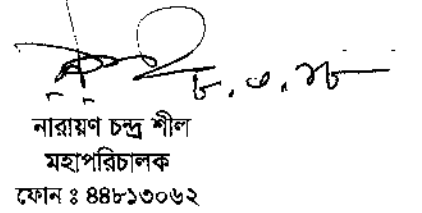 ৮.৩.১৮
নারায়ণ চন্দ্র শীল
মহাপরিচালক
ফোন ঃ ৪৪৮১৩০৬২